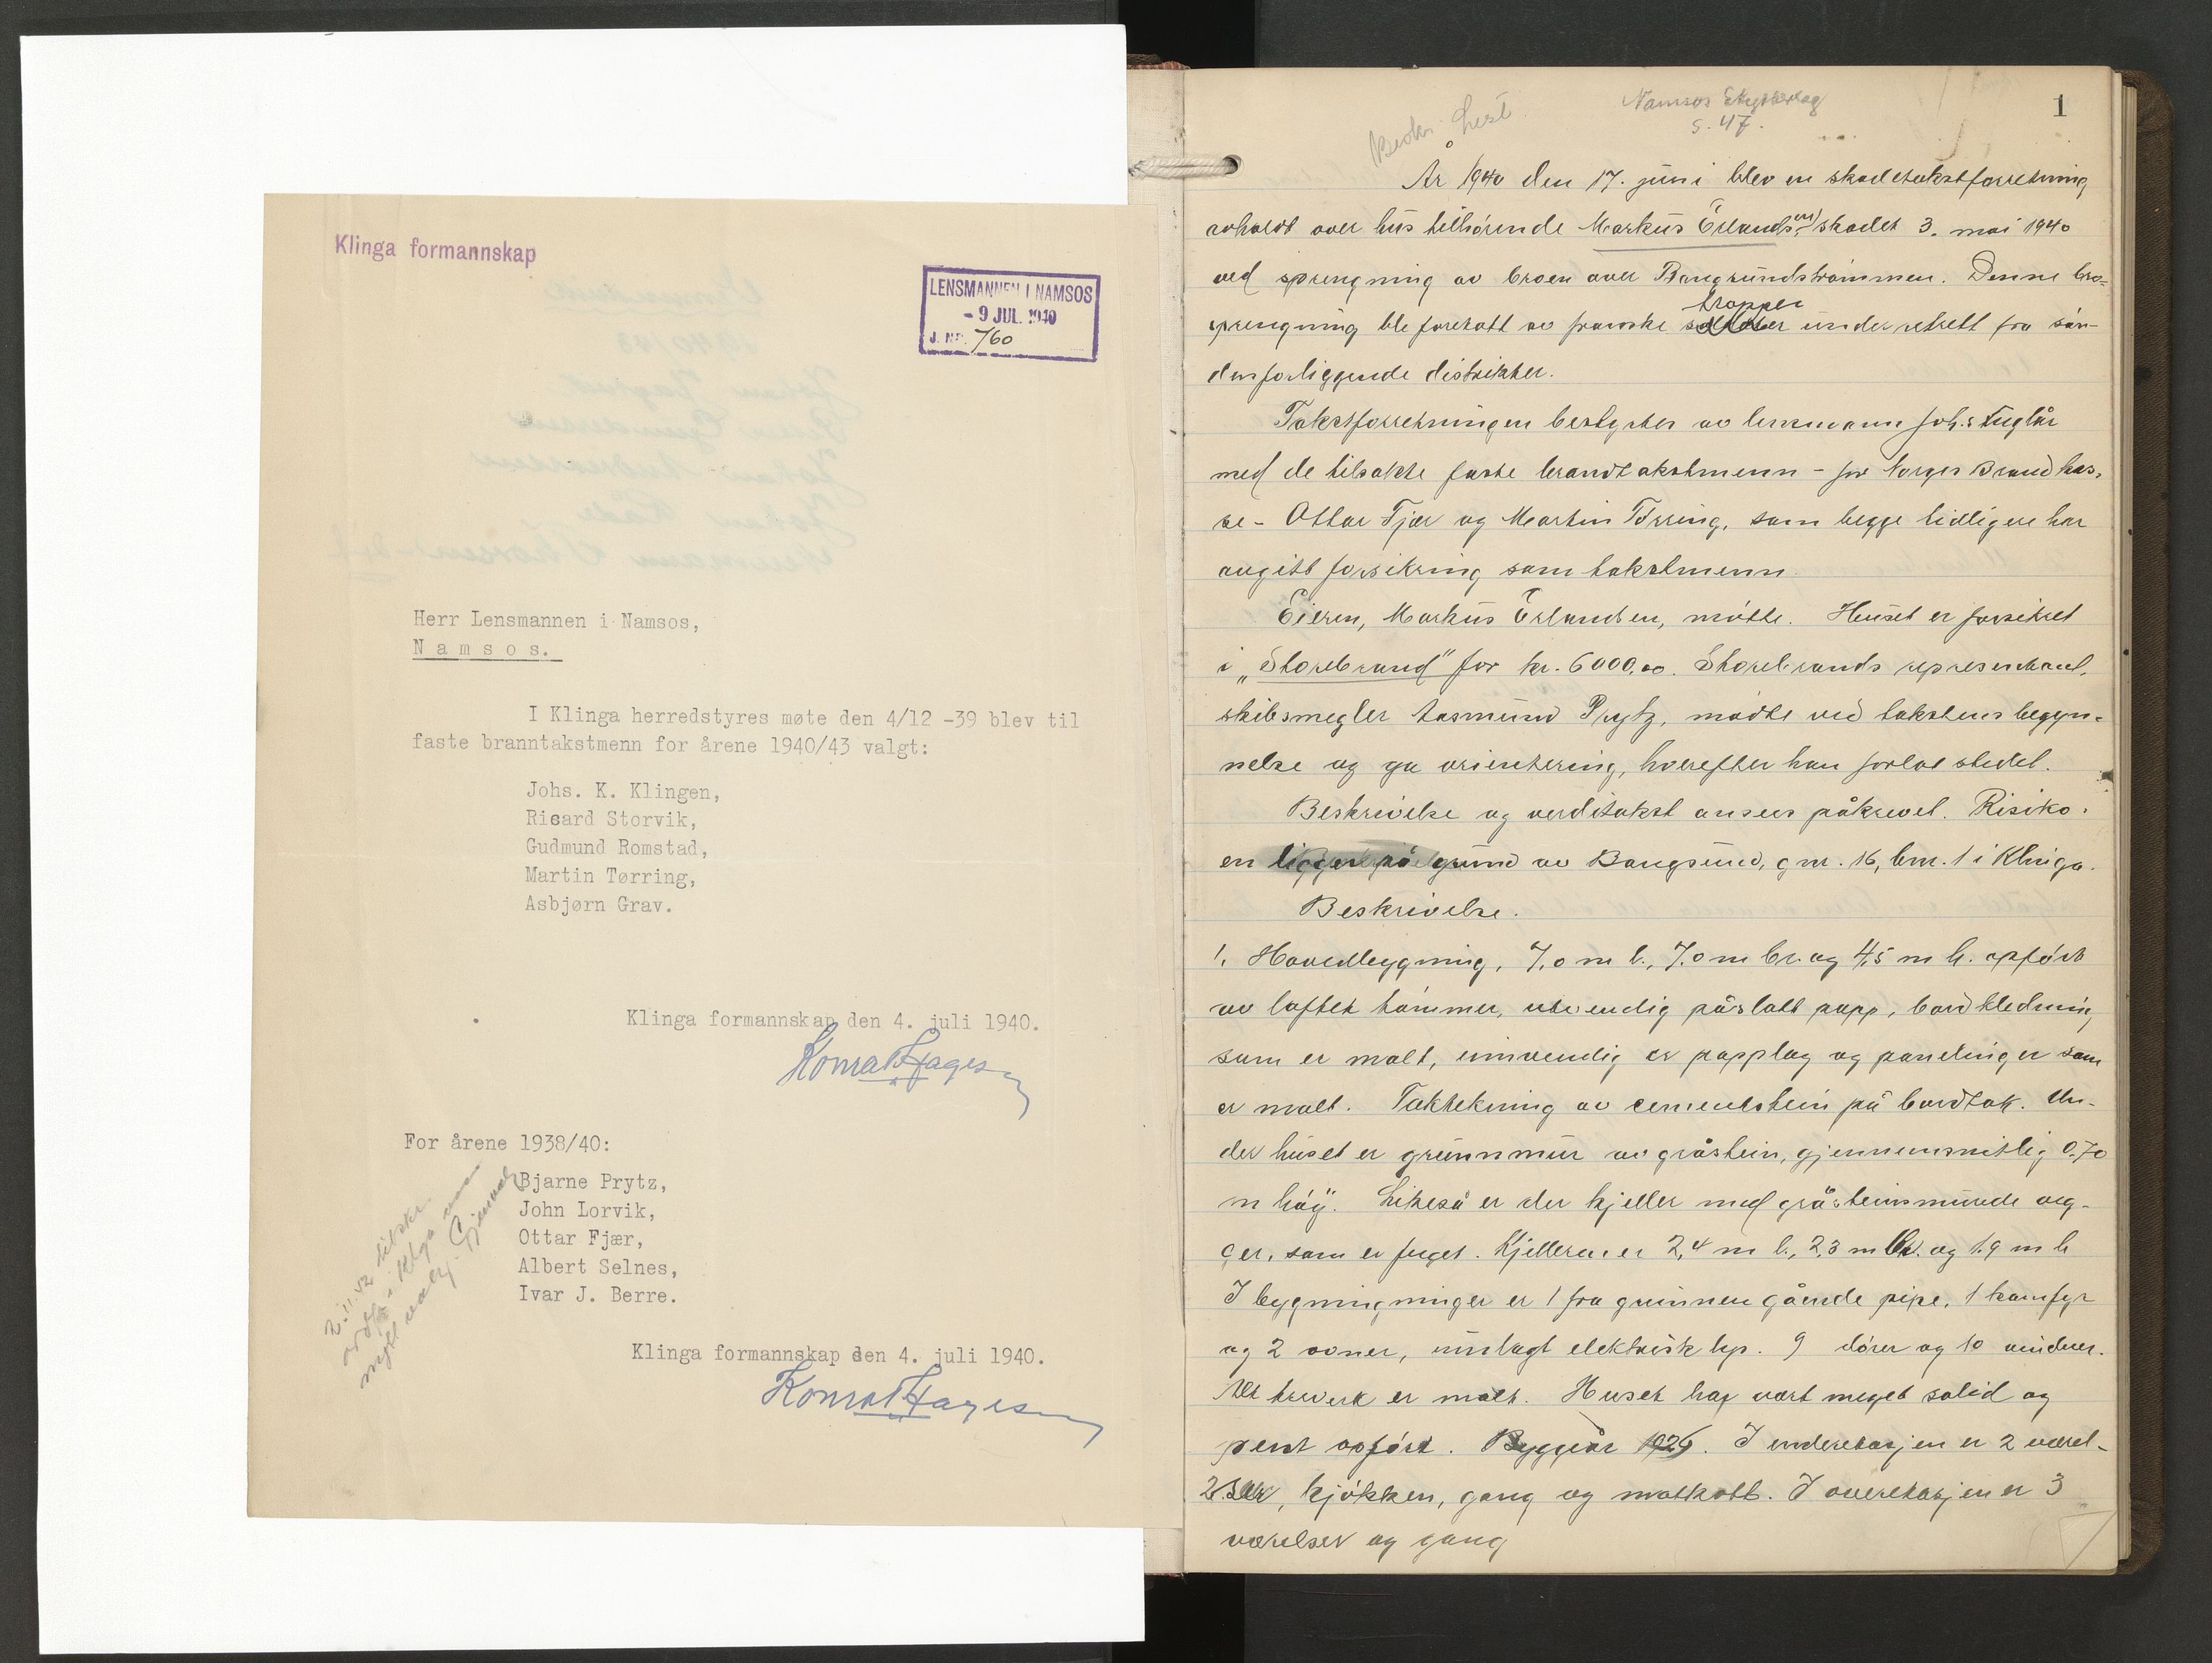 Klinga formannskap
LENSMANNEN I NAMSOS
- 9 JUL. 1940
J. NR. 760
Herr Lensmannen i Namsos,
Namsos.
I Klinga herredstyres møte den 4/12 -39 blev til
faste branntakstmenn for årene 1940/43 valgt:
Johs. K. Klingen,
Ricard Storvik,
Gudmund Romstad,
Martin Tørring,
Asbjørn Grav.
Klinga formannskap den 4. juli 1940.
Konrad Hagesen
For årene 1938/40:
Bjarne Prytz,
John Lorvik,
Ottar Fjær,
Albert Selnes,
Ivar J. Berre.
2.11.42 tilskr.
ordf. i Klga om
nytt valg. Gjenvalg
Klinga formannskap den 4. juli 1940.
Konrad Hagesen
Namsos Skytterlag
s. 47.
1
År 1940 den 17. juni blev en skadetakstforretning
avholdt over hus tilhørende Markus Erlandsen, skadet 3. mai 1940
ved sprengning av broen over Bangsundstrømmen. Denne bro-
sprengning ble foretatt av franske tropper under retrett fra søn-
denforliggende distrikter.
Takstforretningen bestyrtes av lensmann Joh.s Fuglår
med de tilsatte faste brandtakstmenn - for Norges Brandkas-
se - Ottar Fjær og Martin Tørring, som begge tidligere har
avgitt forsikring som takstmenn.
Eieren, Markus Erlandsen, møtte. Huset er forsikret
i „Storebrand" for kr. 6000.00. Storebrands representant,
skibsmegler Aasmund Prytz, møtte ved takstens begyn-
nelse og ga orientering, hvorefter han forlot stedet.
Beskrivelse og verditakst ansees påkrevet. Risiko-
en ligger på grund av Bangsund, gnr. 16, bnr. 1 i Klinga.
Beskrivelse.
1. Hovedbygning, 7,0 m l., 7,0 m br. og 4,5 m h. opført
av laftet tømmer, utvendig påslått papp, bordkledning
som er malt, innvendig er papplag og panelinger som
er malt. Taktekning av cementstein på bordtak. Un-
der huset er grunnmur av gråstein, gjennemsnitlig 0,70
m høy. Likeså er der kjeller med gråsteinsmurede veg-
ger, som er fuget. Kjelleren er 2,4 m l., 2,3 m br. og 1.9 m h
I bygningninger er 1 fra grunnen gående pipe, 1 komfyr
og 2 ovner, innlagt elektrisk lys. 9 dører og 10 vinduer.
Alt treverk er malt. Huset har vært meget solid og
pent opført. Byggeår 1926. I underetasjen er 2 værel-
ser, kjøkken, gang og matkott. I overetasjen er 3
værelser og gang